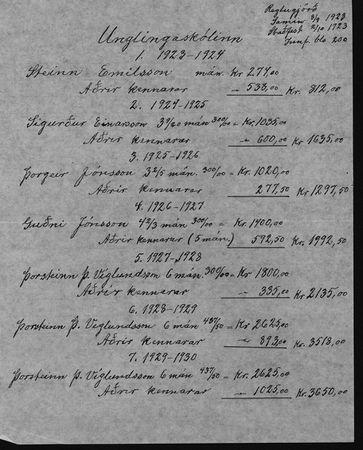 Reglugjörð
Samin 3/9 1923
Staðfest 2/10 1923
bls. 200
Unglingaskólinn
1. 1923-1924
Steinn Emilsson mán. Kr 274.00
Aðrir kennarar - 538.00 Kr 812,00
2. 1924-1925
Sigurður Einarsson 3 9/20 mán 300/00 = Kr 1035.00
Aðrir kennarar - 600,00 Kr 1635.00
3. 1925-1926
Þorgeir Jónsson 3 2/5 mán. 300/00 = Kr. 1020,00
Aðrir kennarar 277.50 Kr 1297,50
4. 1926-1927
Guðni Jónsson 4 2/3 mán 300/00 = Kr. 1400,00
Aðrir kennarar (5 mán) 592,50 Kr. 1992,50
5. 1927-1928
Þorsteinn Þ. Víglundsson 6 mán. 300/00 = Kr 1800,00
Aðrir kennarar - 335,00 Kr 2135,00
6. 1928-1929
Þorsteinn Þ. Víglundsson 6 mán 437/50 = Kr. 2625,00
Aðrir kennarar - 893,00 Kr. 3518,00
7. 1929-1930
Þorsteinn Þ. Víglundsson 6 mán 437/50 = Kr. 2625,00
Aðrir kennarar - 1025,00 Kr. 3650,00